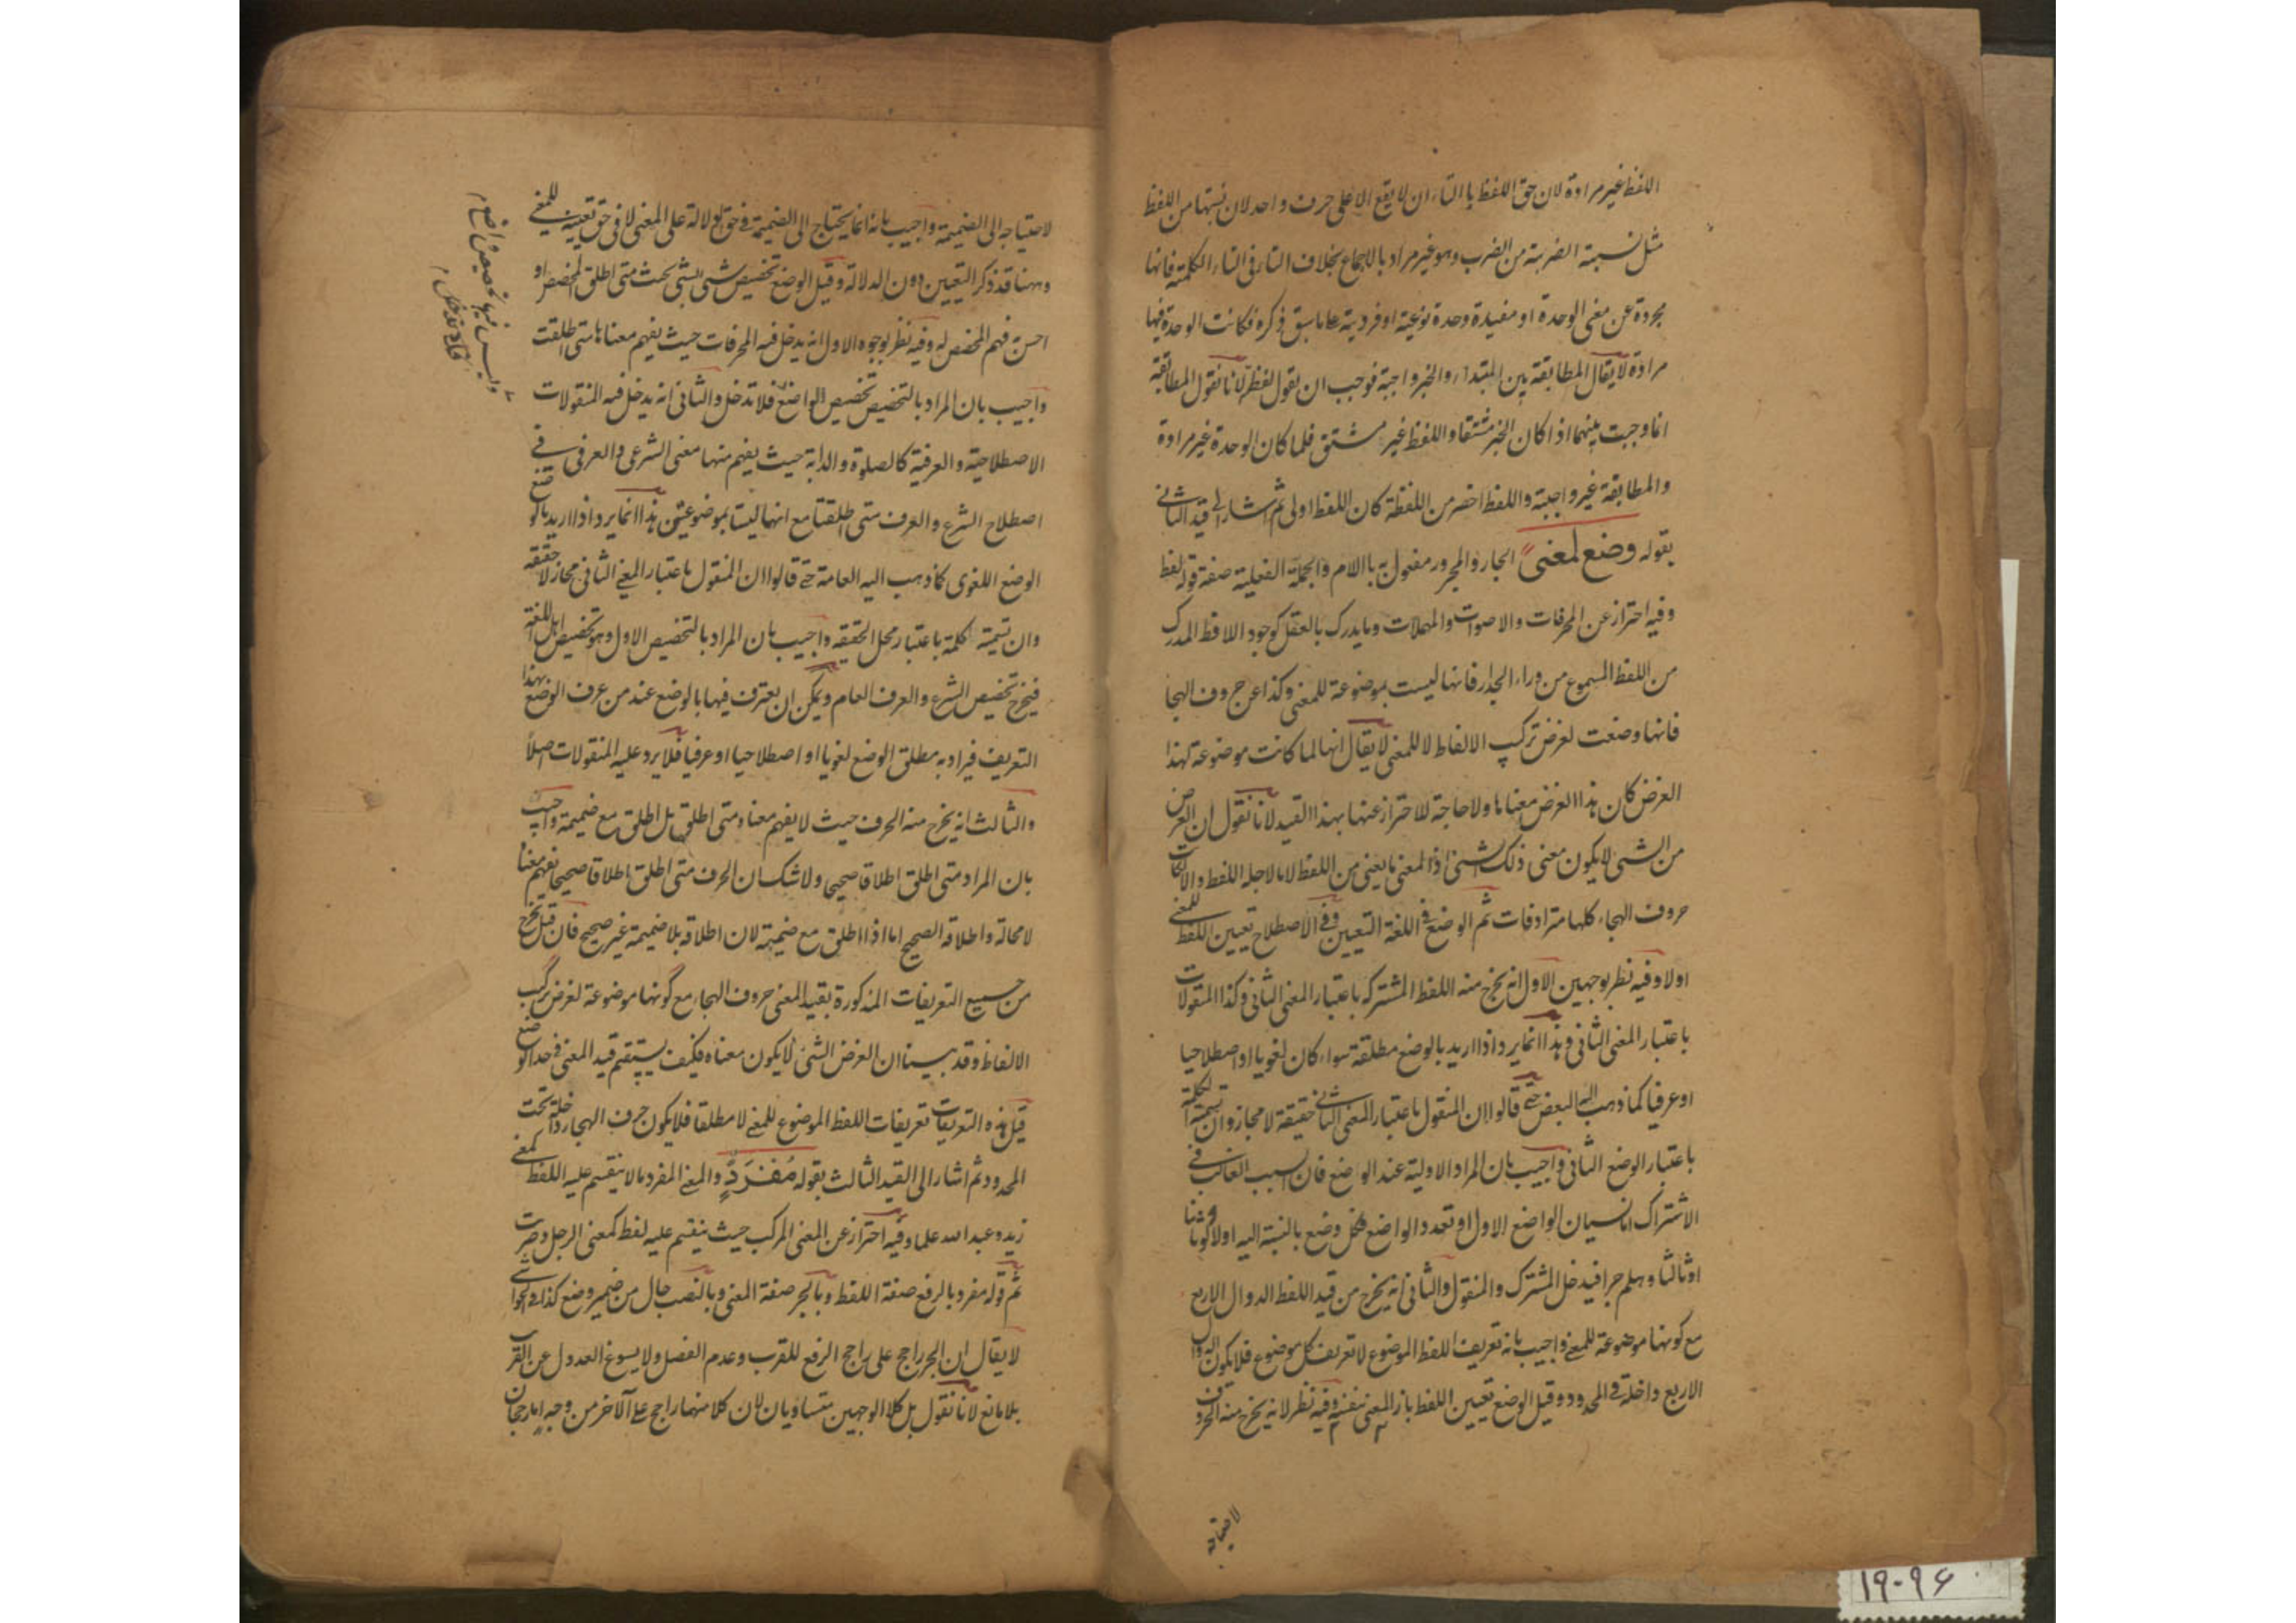 اللفظ غير مرادة لان حق اللفظ باالتاء ان لا يقع الا على حرف واحد لان نسبتها من اللفظ
مثل نسبة الضربة من الضرب وهو غير مراد بالاجماع بخلاف التاء في التاء الكلمة فانها
مجردة عن معنى الوحدة او مفيدة وحدة نوعية او فردية على ما سبق ذكره فكانت الوحدة فيها
مرادة لا يقال المطابقة بين المبتداء والخبر واجبة فوجب ان يقول لفظة لانا نقول المطابقة
انما وجبت بينهما اذا كان الخبر مشتقا واللفظ غير مشتق فلما كان الوحدة غير مرادة
والمطابقة غير واجبة واللفظ اخصر من اللفظة كان اللفظ اولى ثم اشار الى قيد الثاني
بقوله وضع لمعنى الجار والمجرور مفعول به باالام والجملة الفعلية صفة قوله لفظ
وفيه احتراز عن المحرفات والاصوات والمهملات وما يدرك بالعقل كوجود اللافظ المدرك
من اللفظ المسموع من وراء الجدار فانها ليست بموضوعة للمعنى وكذا عن حروف الهجا
فانها وضعت لغرض تركيب الالفاظ لا للمعنى لا يقال انها لما كانت موضوعة لهذا
الغرض كان هذا الغرض معناها ولا حاجة للاحتراز عنها بهذا القيد لانا نقول ان الغرض
من الشئ لا يكون معنى ذلك الشئ اذ المعنى ما يعنى من اللفظ لا ما لاجله اللفظ والا لكانت
حروف الهجاء كلها مترادفات ثم الوضع في اللغة التعيين وفي الاصطلاح تعيين اللفظ للمعنى
اولا وفيه نظر بوجهين الاول انه يخرج منه اللفظ المشترك باعتبار المعنى الثاني وكذا المنقولات
باعتبار المعنى الثاني وهذا انما يرد اذا اريد بالوضع مطلقة سواء كان لغويا او اصطلاحيا
او عرفيا كما ذهب اليه البعض حتى قالوا ان المنقول باعتبار المعنى الثاني حقيقة لا مجاز وان تسمية الكلمة
باعتبار الوضع الثاني واجيب بان المراد الاولية عند الواضع فان سبب الغالب في
الاشتراك اما نسيان الواضع الاول او تعدد الواضع فكل وضع بالنسبة اليه اولا وثانيا
او ثالثا وهلم جرا فيدخل المشترك والمنقول والثاني انه يخرج من قيد اللفظ الدوال الاربع
مع كونها موضوعة للمعنى واجيب بانه تعريف اللفظ الموضوع لا تعريف كل موضوع فلا يكون الدوال
الاربع داخلة في المحدود وقيل الوضع تعيين اللفظ بازاء المعنى بنفسه وفيه نظر لانه يخرج منه الحروف
لاحتياجه
لاحتياجه الى الضميمة واجيب بانه انما يحتاج الى الضميمة في حق دلالة على المعنى لا في حق تعيينه للمعنى
وههنا قد ذكر التعيين دون الدلالة وقيل الوضع تخصيص شئ بشئ بحيث متى اطلق المخصص او
احس فهم المخصص له وفيه نظر بوجوه الاول انه يدخل فيه المحرفات حيث يفهم معناها متى اطلقت
واجيب بان المراد بالتخصيص تخصيص الواضع فلا تدخل والثاني انه يدخل فيه المنقولات
الاصطلاحية والعرفية كالصلوة والدابة حيث يفهم منها معنى الشرعي والعرفي في
اصطلاح الشرع والعرف متى اطلقتا مع انهما ليستا بموضوعتين هذا انما يرد اذا اريد بالوضع
الوضع اللغوي كما ذهب اليه العامة حتى قالوا ان المنقول باعتبار المعنى الثاني مجاز لا حقيقة
وان تسمية الكلمة باعتبار محل الحقيقة واجيب بان المراد بالتخصيص الاول وهو تخصيص اهل اللغة
فيخرج تخصيص الشرع والعرف العام ويمكن ان يعترف فيها بالوضع عند من عرف الوضع بهذا
التعريف فيراد به مطلق الوضع لغويا او اصطلاحيا او عرفيا فلا يرد عليه المنقولات اصلا
والثالث انه يخرج منه الحرف حيث لا يفهم معناه متى اطلق بل اطلق مع ضميمة واجيب
بان المراد متى اطلق اطلاقا صحيحا ولا شك ان الحرف متى اطلق اطلاقا صحيحا يفهم معناه
لا محالة واطلاقه الصحيح اما اذا اطلق مع ضميمة لان اطلاقه بلا ضميمة غير صحيح فان قيل يخرج
من جميع التعريفات المذكورة بقيد المعنى حروف الهجاء مع كونها موضوعة لغرض تركيب
الالفاظ وقد بينا ان الغرض الشئ لا يكون معناه فكيف يستقيم قيد المعنى في حد الوضع
قيل هذه التعريفات تعريفات اللفظ الموضوع للمعنى لا مطلقا فلا يكون حرف الهجاء داخلة تحت
المحدود ثم اشار الى القيد الثالث بقوله مُفْرَدٍ والمعنى المفرد ما لا ينقسم عليه اللفظ كمعنى
زيد وعبد الله علما وفيه احتراز عن المعنى المركب حيث ينقسم عليه لفظ كمعنى الرجل وضربت
ثم قوله مفرد بالرفع صفة اللفظ وبالجر صفة المعنى وبالنصب حال من ضمير وضع كذا في الحواشي
لا يقال ان الجر راجح على راجح الرفع للقرب وعدم الفصل ولا يسوغ العدول عن القرب
بلا مانع لانا نقول بل كلا الوجهين متساويان لان كلا منهما راجح على الآخر من وجه اما رجحان
وليس فيها تخصيص واضع
فلا تدخل
۱۹۰۹۶